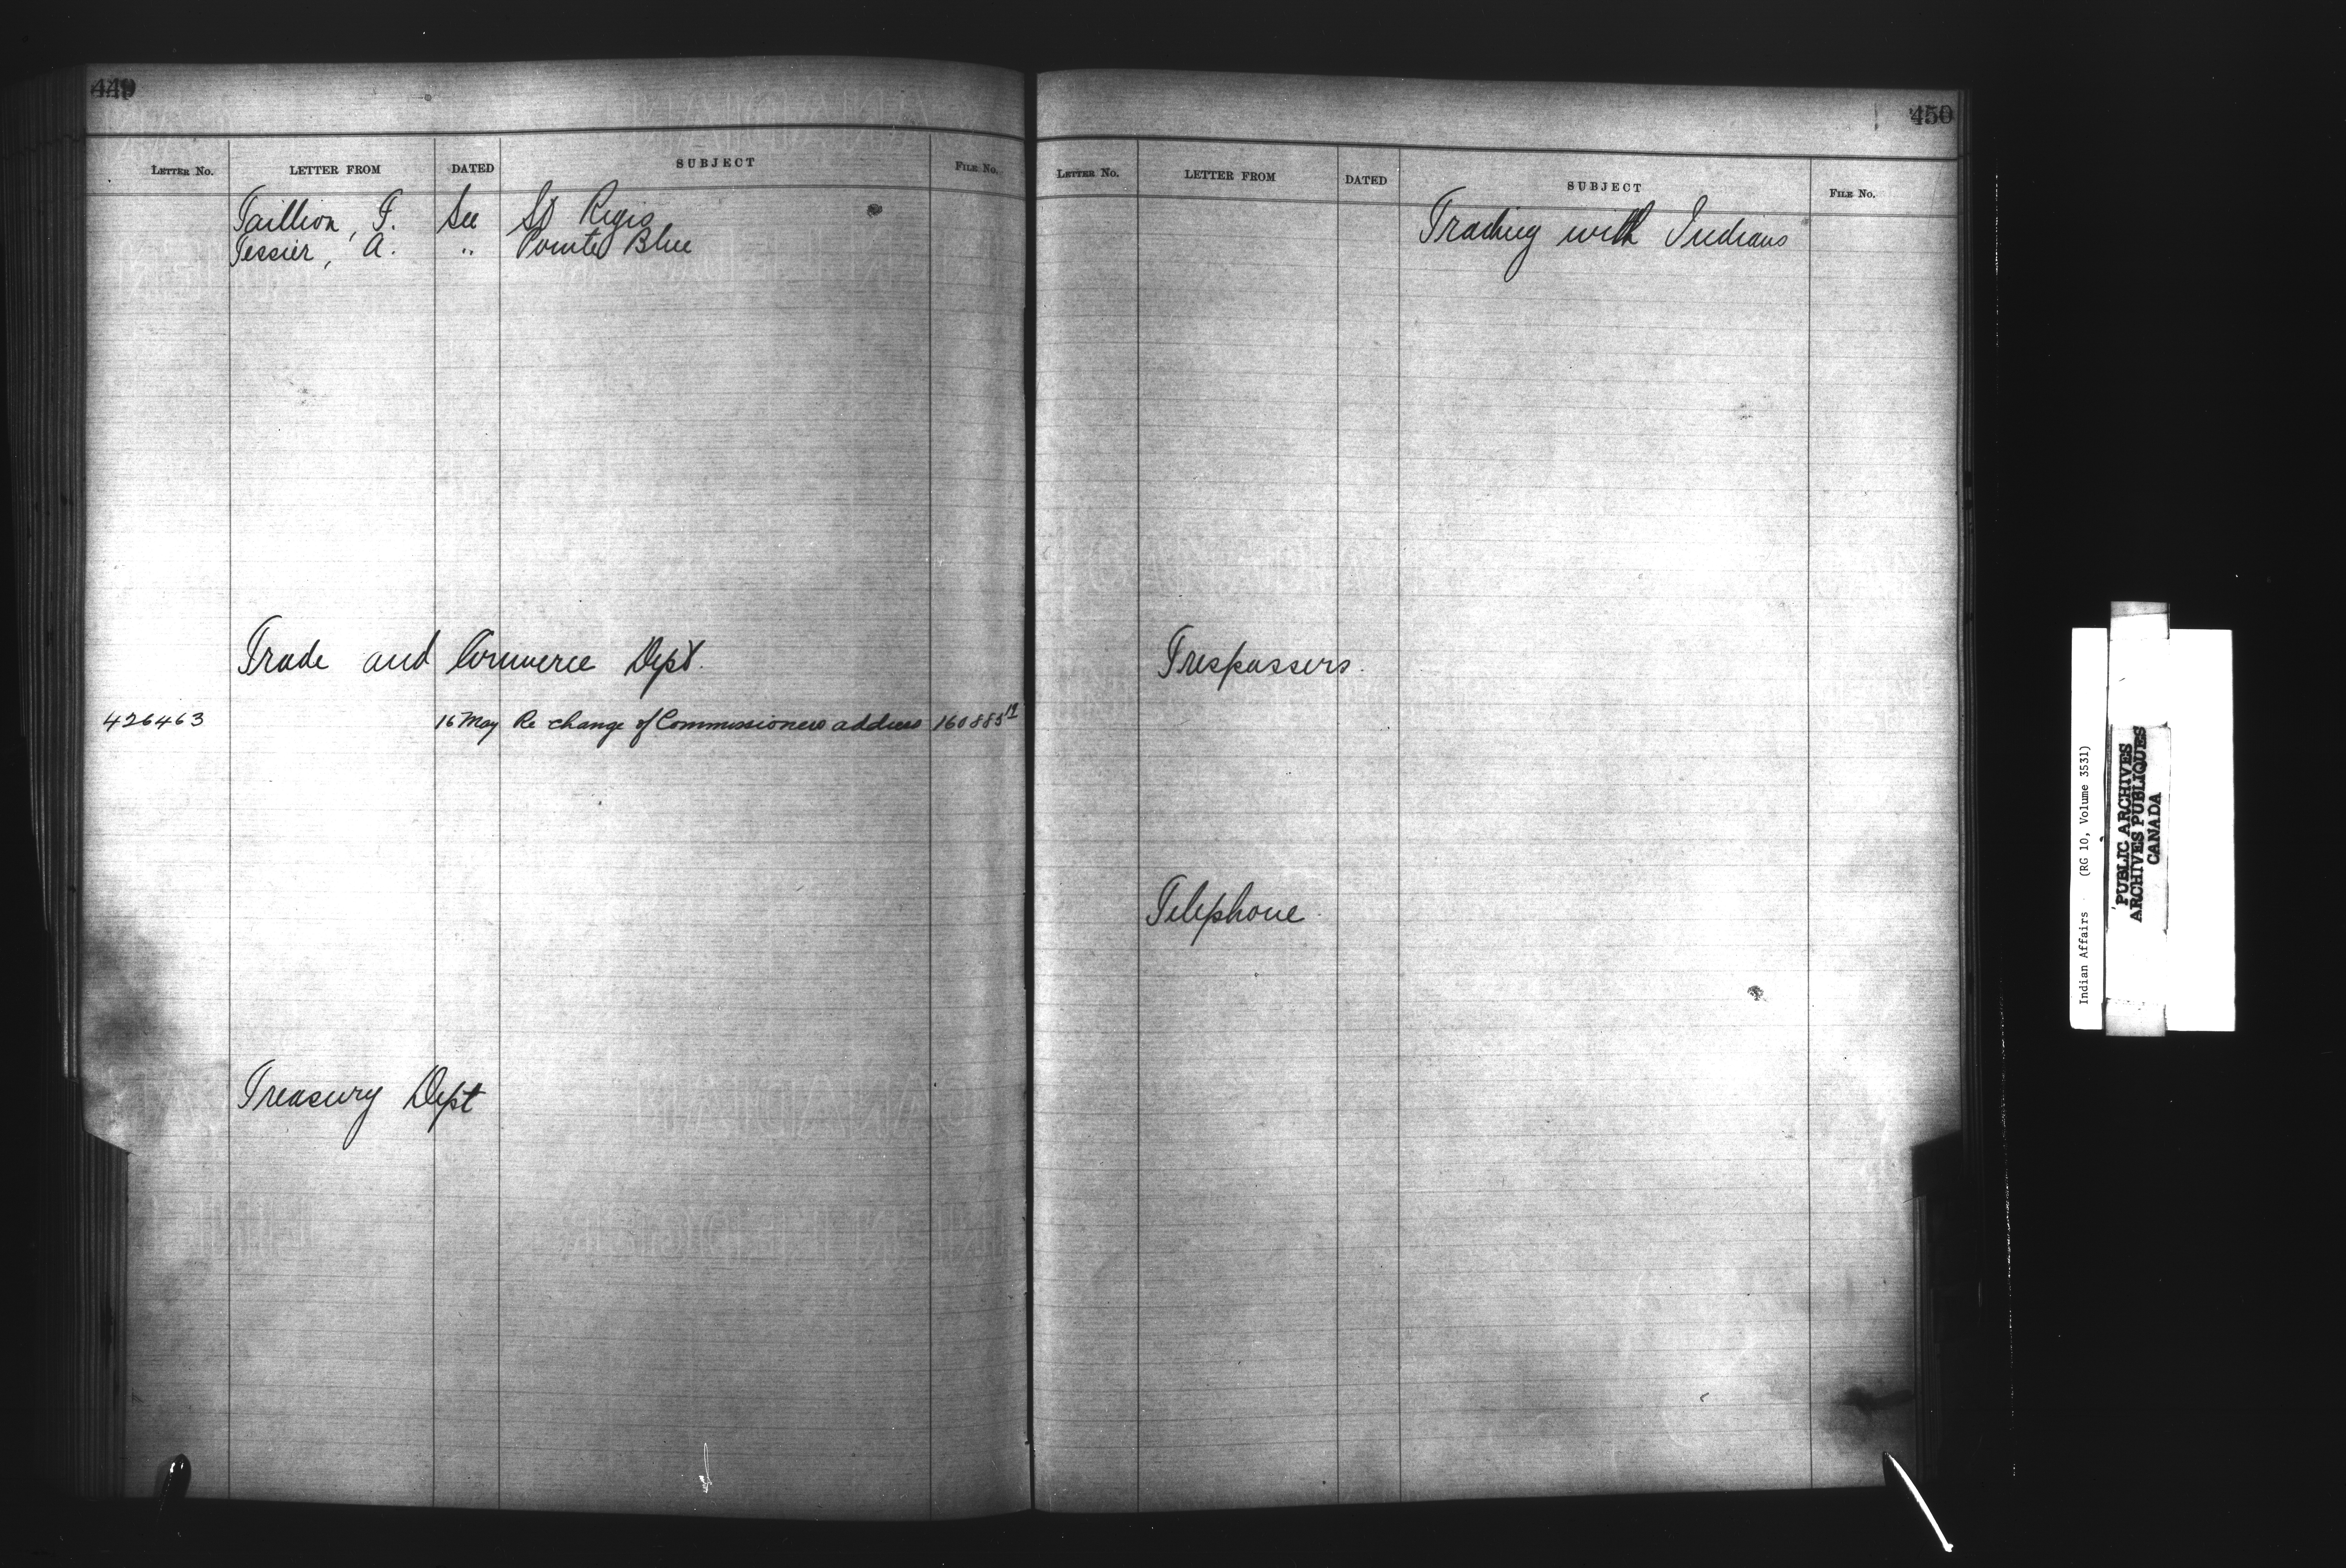 449
LETTER NO. LETTER FROM DATED SUBJECT FILE NO.
Taillion, F. See St Regis
Tessier, A. " Pointe Blue
Trade and Commerce Dept.
426463 16 May Re change of Commissioners address 160885
Treasury Dept
450
LETTER NO. LETTER FROM DATED SUBJECT FILE NO.
Trading with Indians
Trespassers.
Telephone
Indian Affairs (RG 10, Volume 3531)
PUBLIC ARCHIVES
ARCHIVES PUBLIQUES
CANADA